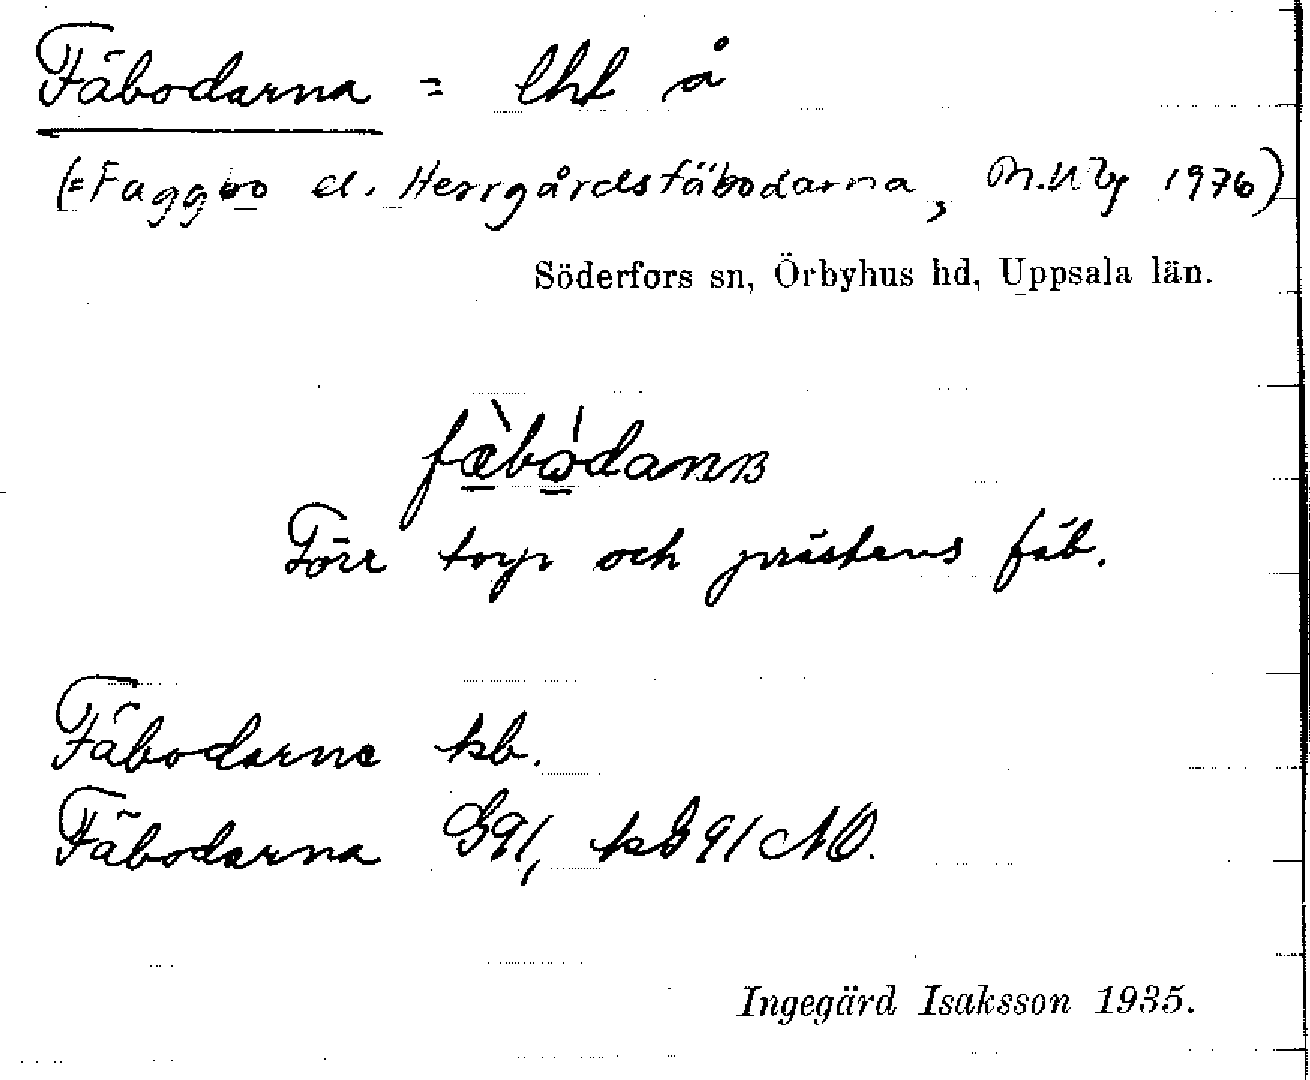 Fäbodarna = lht å
(=Faggbo el. Herrgårdsfäbodarna, M.Wby 1976)
Söderfors sn, Örbyhus hd, Uppsala län.
Förr torp och prästens fäb.
Fäbodarne kb.
Fäbodarna G91, kG91 NO.
Ingegärd Isaksson 1935.